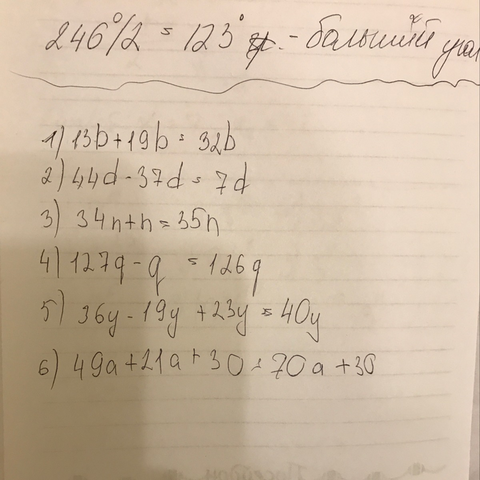 246°/2 = 123° - больший угол
1) 13b+19b = 32b
2) 44d - 37d = 7d
3) 34n+n = 35n
4) 127q - q = 126q
5) 36y - 19y + 23y = 40y
6) 49a+21a+30 = 70a+30